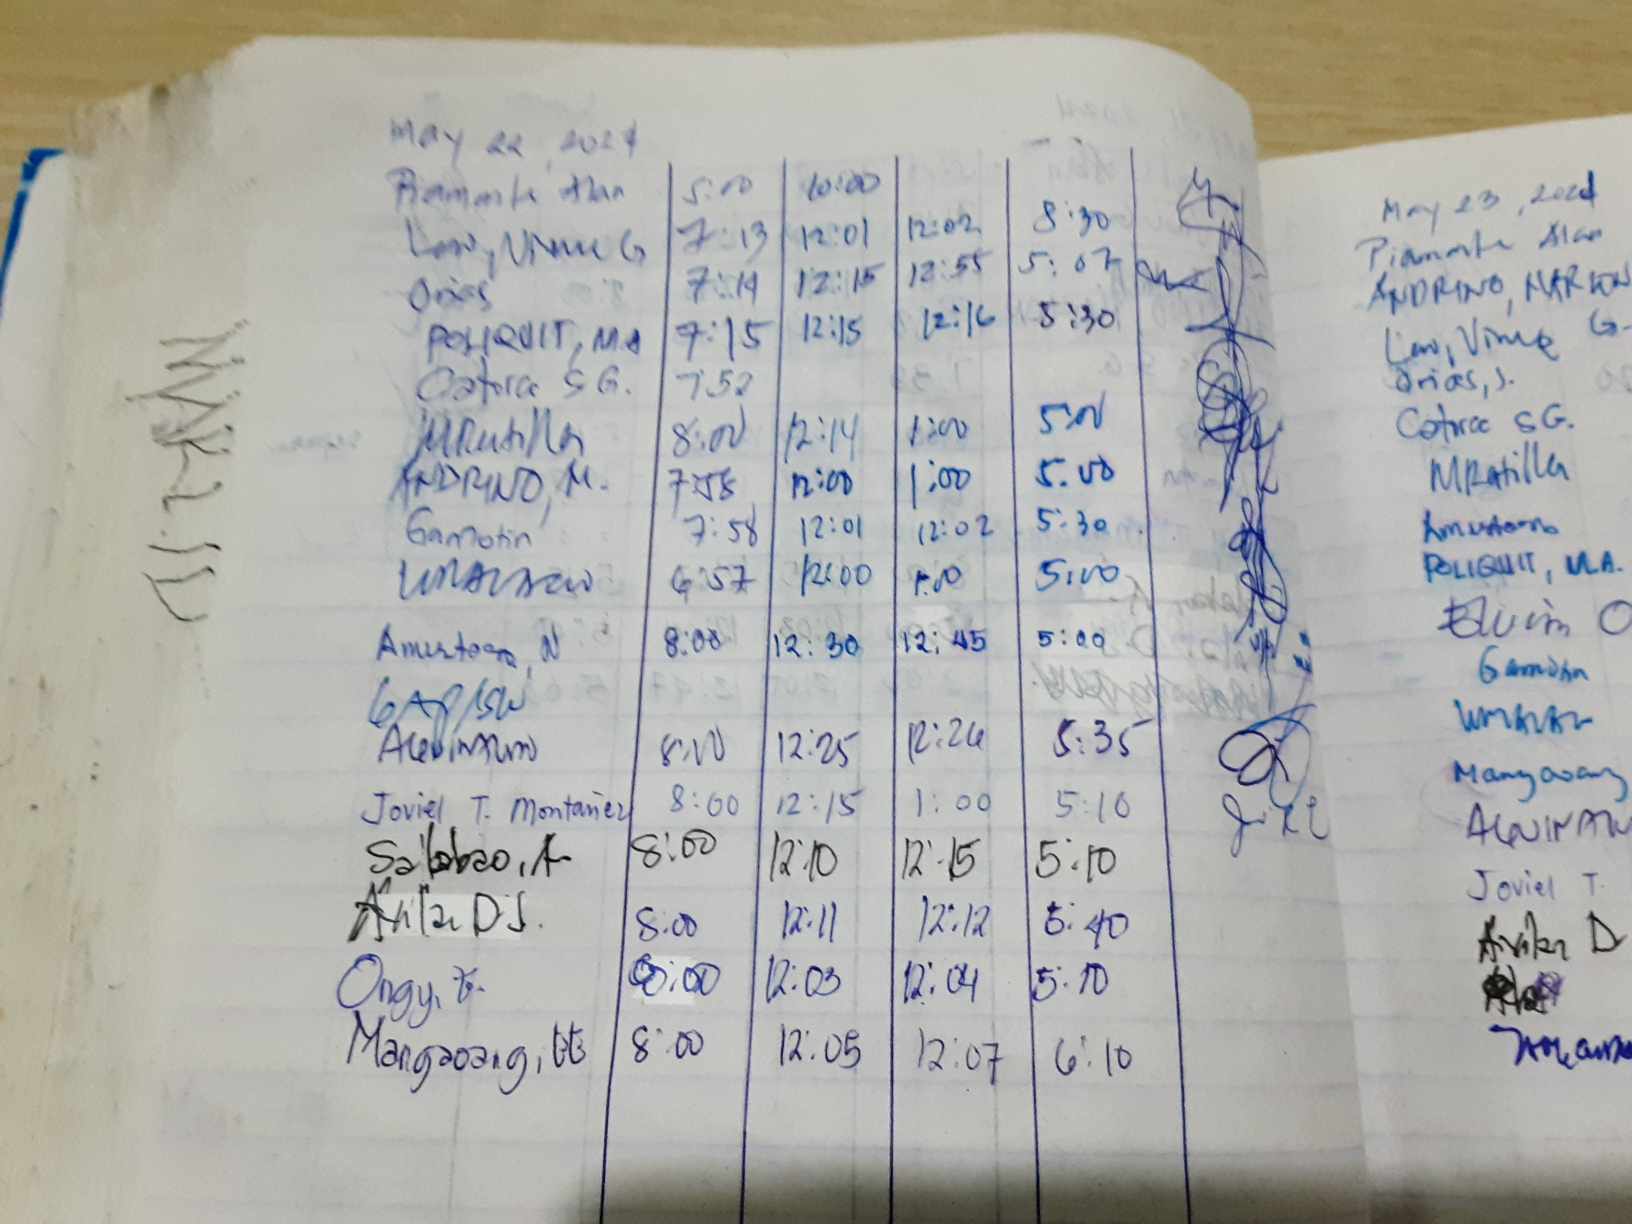 May 22, 2024
Piamonte Alan 5:00 10:00
Law, Vince G 7:13 12:01 12:02 8:30
Orias 7:14 12:15 12:55 5:07
POLIQUIT, M.A 7:15 12:15 12:16 5:30
Catorce S G. 7:52
MRatilla 8:00 12:14 1:00 5:00
ANDRINO, M. 7:58 12:00 1:00 5:00
Gamotin 7:58 12:01 12:02 5:30
6:57 12:00 1:00 5:00
N 8:00 12:30 12:45 5:00
AQUINALDO 8:00 12:25 12:26 5:35
Joviel T. Montañez 8:00 12:15 1:00 5:10
Salabao, A 8:00 12:10 12:15 5:10
D.J. 8:00 12:11 12:12 5:40
Ongy, 8:00 12:03 12:04 5:10
Mangaoang, 8:00 12:05 12:07 6:10
May 23, 2024
Piamonte Alan
ANDRINO, MARION
Law, Vince G.
Orias, J.
Catorce SG.
MRatilla
POLIQUIT, M.A.
Gamotin
Mangaoang
Joviel T.
D